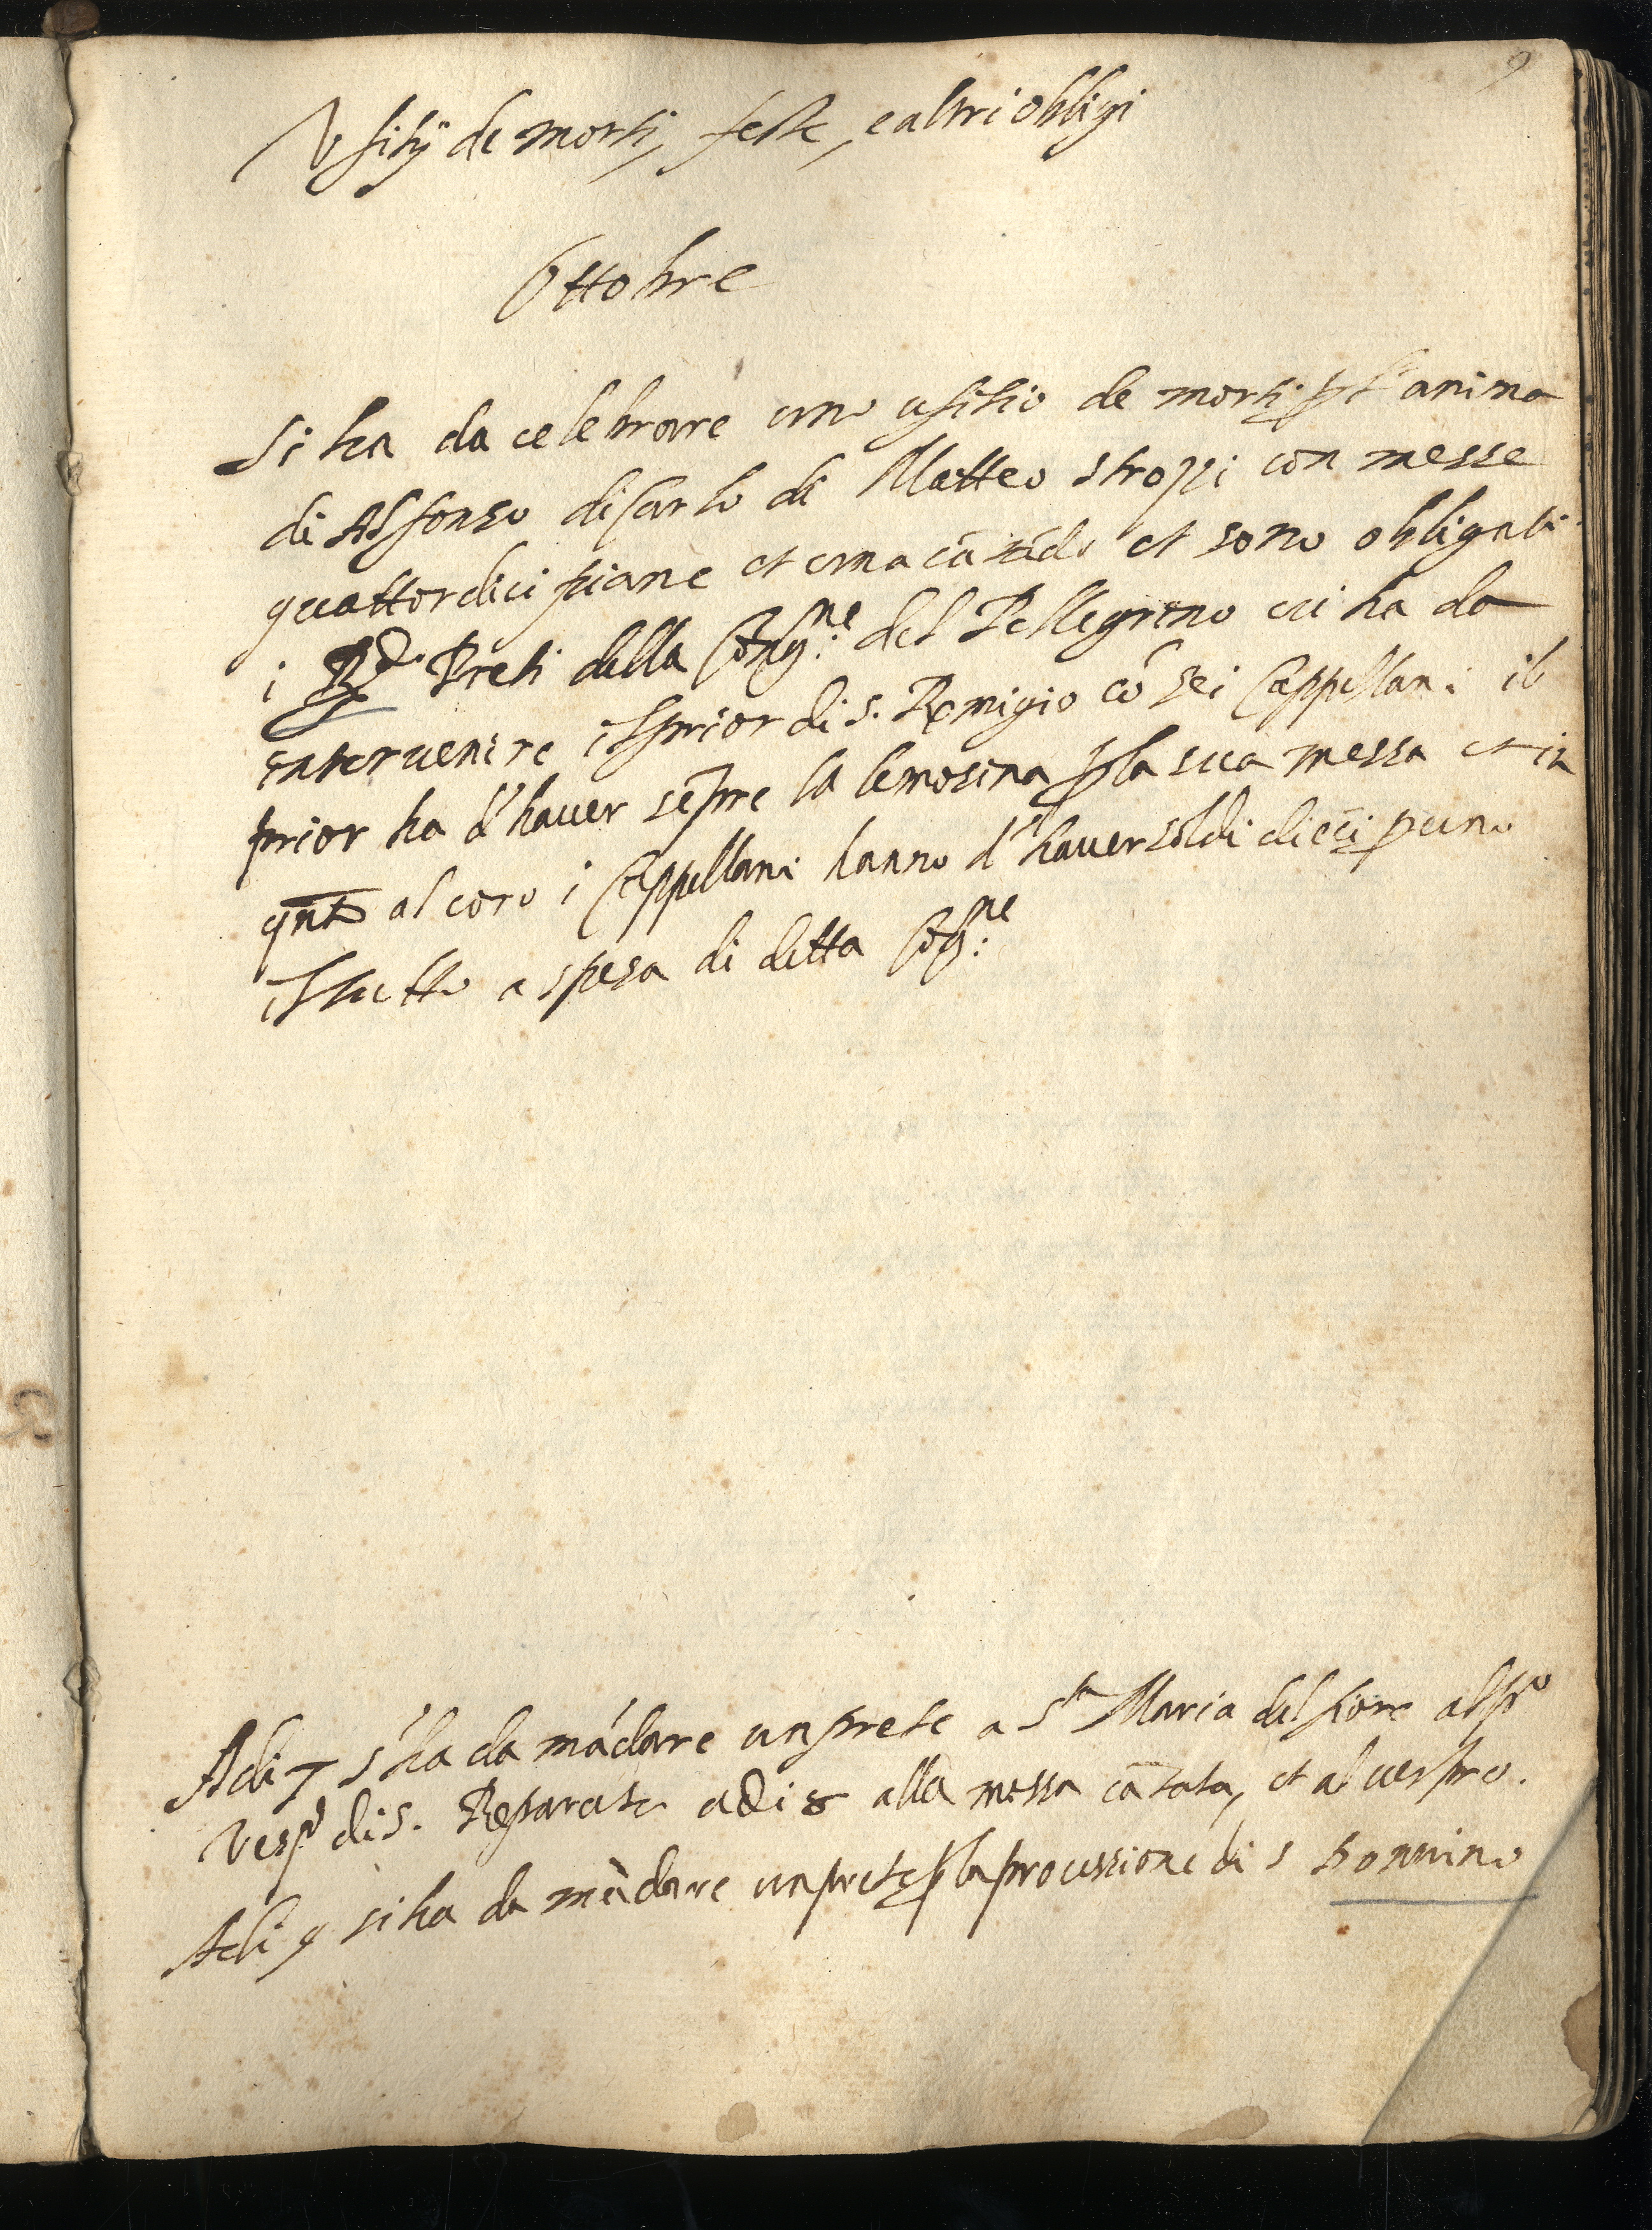 9
Vfitij de morti, feste, e altri obligi
Ottobre
Si ha da celebrare uno ufitio de morti p l'anima
di Alfonso di Carlo di Matteo strozzi con messe
quattordici piane et una cātādo et sono obligati
i RR.di Preti della Cōg.ne del Pellegrino cui ha da
intervenire il prior di s. Romigio cō sei Cappellani il
prior ha d'haver sēpre la lemosina p la sua messa et in
qnto al coro i Cappellani hanno d'haver soldi dieci p uno
il tutto a spesa di detta Cōg.ne
Adi 7 s'ha da mādare un prete a S.ta Maria del fiore al po
Vespo di S. Reparata adi 8 alla messa cātata, et al vespro.
Adi 9 si ha da mādare un prete p la processione di s